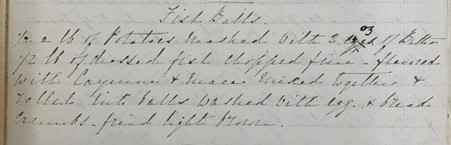 Fish Balls.
1/2 a lb of Potatoes mashed with 2 oz of Butter
1/2 lb of dressed fish chopped fine - flavored
with Cayenne & Mace. Mixed together &
rolled into balls washed with egg & bread
Crumbs - fried light brown.